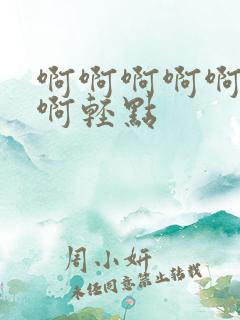 啊啊啊啊啊
啊輕點
周小妍
未經同意禁止轉載